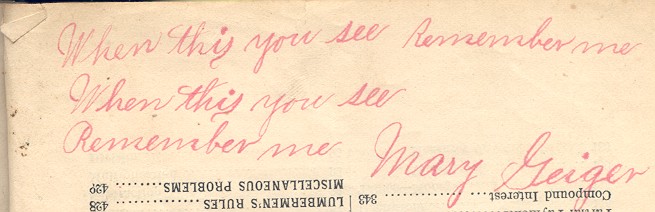 When this you see Remember me
When this you see
Remember me
Mary Geiger
MISCELLANEOUS PROBLEMS 429
LUMBERMEN'S RULES 428
Compound Interest 343